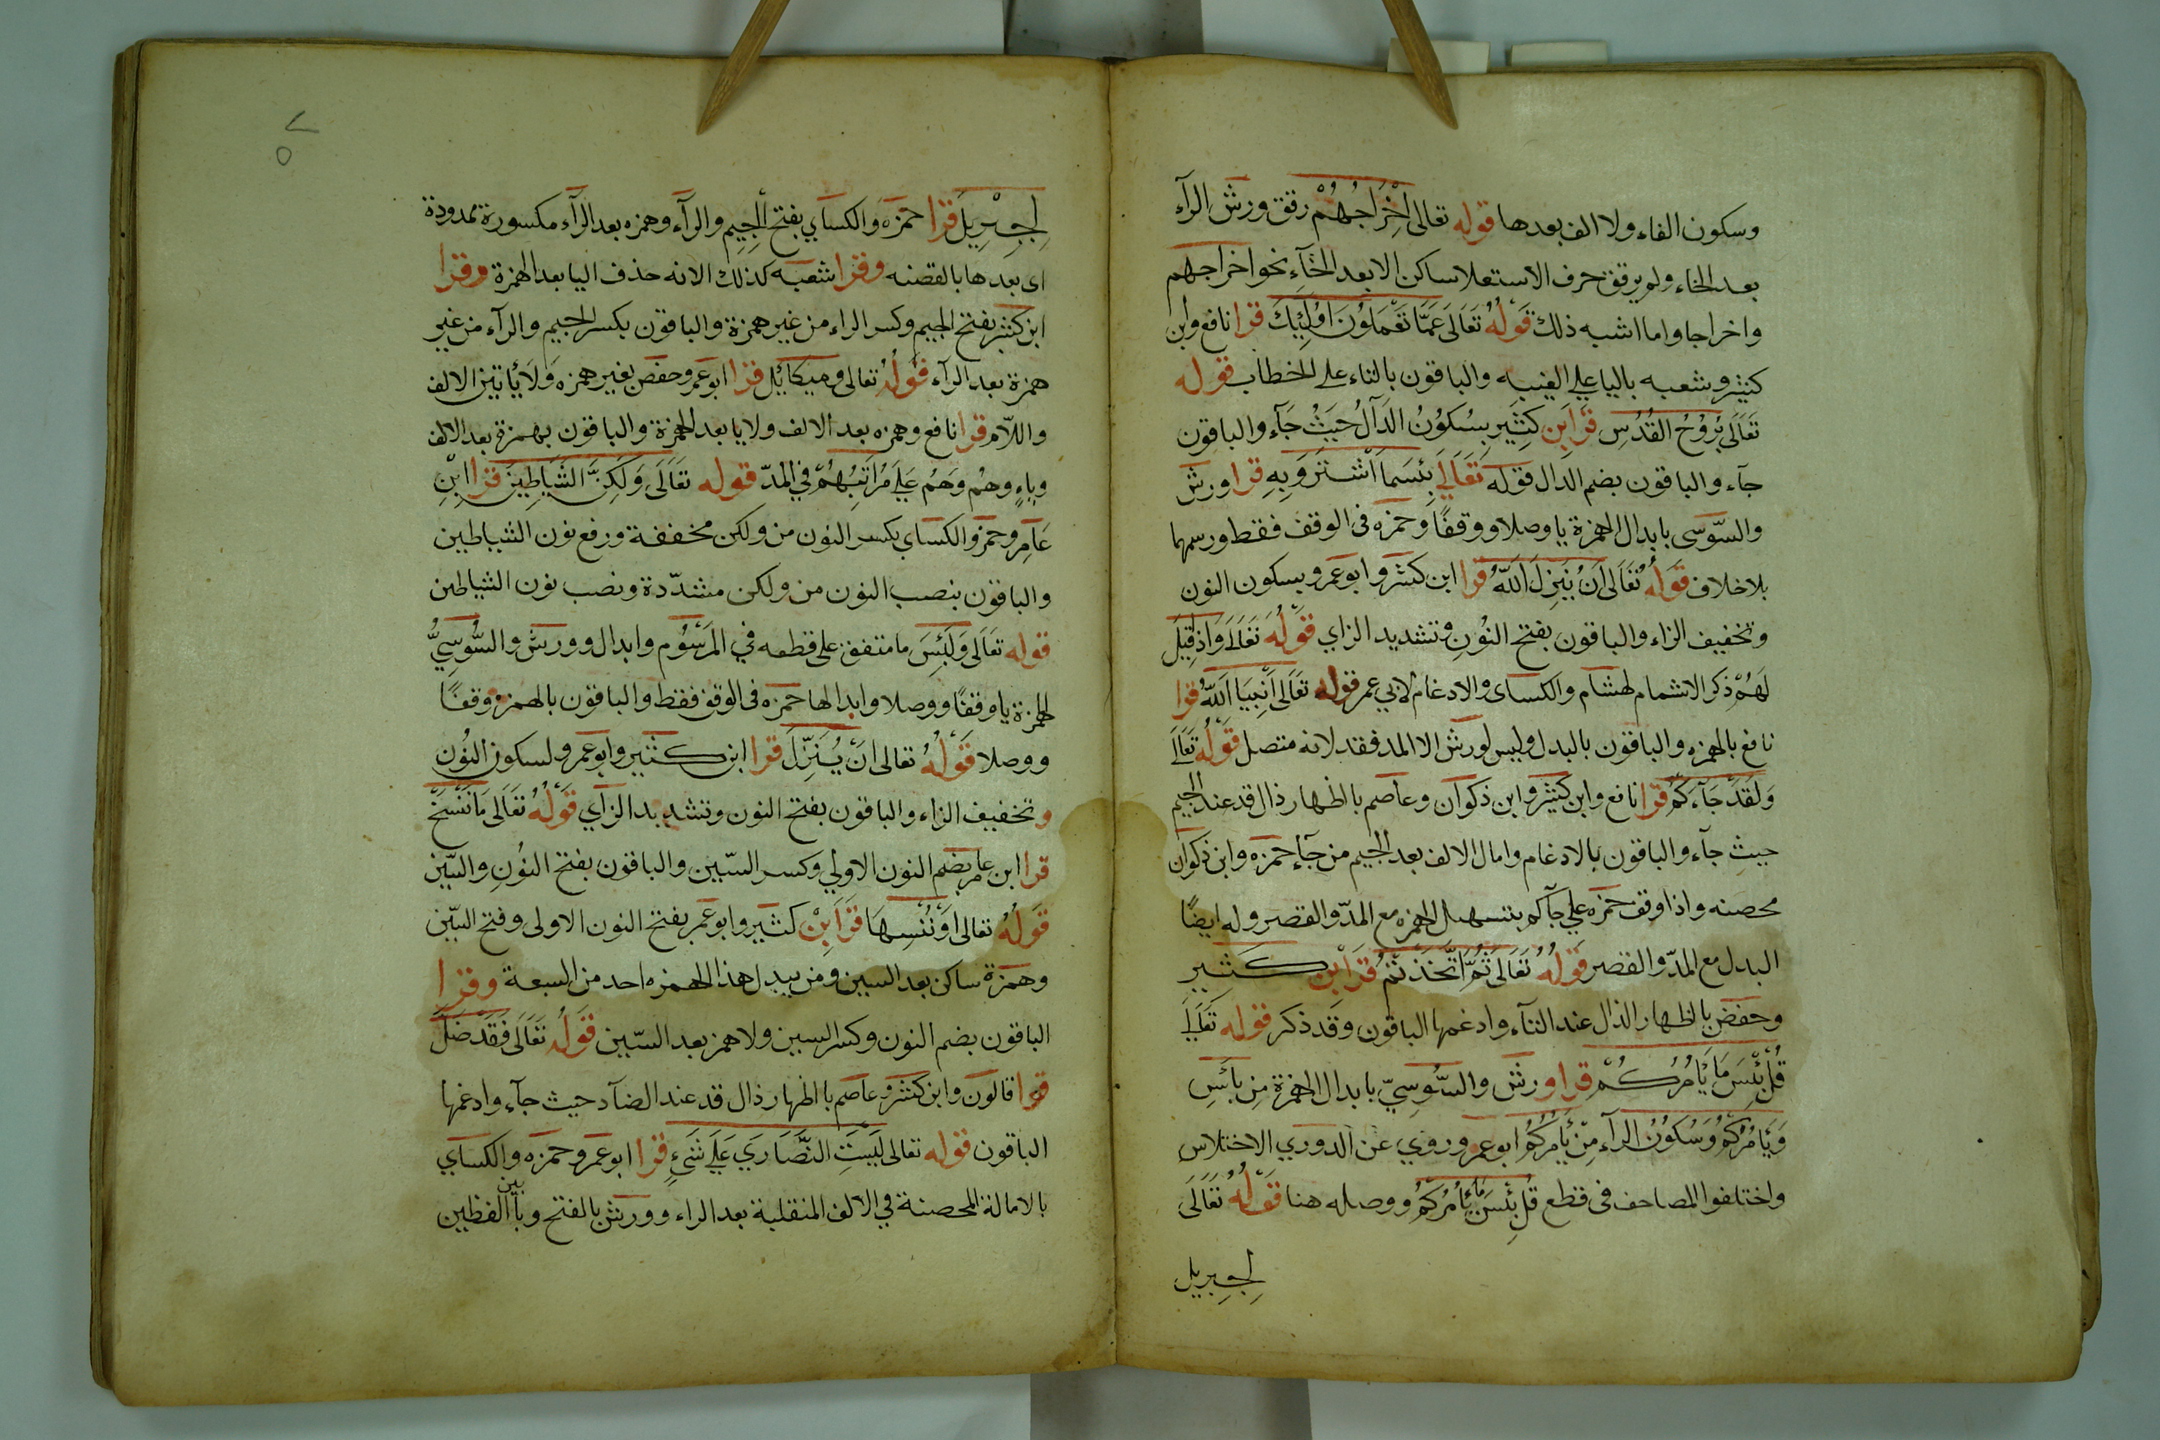 وسكون الفاء ولا الف بعدها قوله تعالى اِخْرَاجُهُمْ رقق ورش الرآء
بعد الخاء ولم يرقق حرف الاستعلا ساكن الا بعد الخآءِ نحو اخراجهم
واخراجا واما اشبه ذلك قَوْلُهُ تَعَالَى عَمَّا تَعْمَلُونَ اوُلَئِكَ قرا نافع وابن
كثير وشعبه باليا علي الغيبه والباقون بالتاء على الخطاب قوله
تَعَالَى بُرُوْحُ القُدُسِ قَرَا بَن كَثِير بِسُكوُنُ الدَآلُ حَيَثْ جَآء والباقون
جآء والباقون بضم الدال قوله تَعَالَى بِئسَمَا اشْتَرَوَ بِهِ قرا ورش
والسّوسى بابدال الهمزة يا وصلا ووقفًا وحمزه فى الوقف فقط ورسمها
بلا خلاف قَوَلُهُ تَعَالىَ اَنُ يُنَزِلَ اللّهُ قرا ابن كثير وابو عمرو بسكون النون
وتخفيف الزاء والباقون بفتح النوُنِ وتشديد الزاي قَوْلُهُ تَعَالَى وَاِذ قِيَلَ
لَهُمْ ذكر الاشمام لهشام والكساى والادغام لابي عمر قوله تعَالَى اَنْبِيَا اللّهُ قرا
نافع بالهمزه والباقون بالبدل وليس لورش الا المد فقد لانه متصل قَوْلُهُ تَعَالَى
وَلَقَدْ جَآءَكُمْ قرا نافع وابن كثير وابن ذكوان وعاصم بالظهار ذال قد عند الجيم
حيث جآء والباقون بالادغام وامال الالف بعد الجيم من جَآءَ حمزه وابن ذكوان
محصنه واذا وقف حمزه علي جآكم بتسهيل الهمزه مع المدّ والقصر وله ايضًا
البدل مع المدّ والقصر قَوَلُهُ تَعَالَى ثُمَّ اتَّخَذْتُمُ قرَا بْن كَثِيرِ
وحفص بالظهار الذال عند التآء وادغمها الباقون وقد ذكر قوله تَعَالَىَ
قُلْ بِئْسَ مَا يَأْمُرُكُمْ قرا ورش والسُّوسِيّ بابدال الهمزة مِن بائَسِ
وَيَامُرُكمُ وَسُكوُنُ الرآء مِنْ يأمُركمُ ابو عمرو وروُي عن الدوري الاختلاسِ
واختلفوا المصاحف فى قطع قُل بِئْسَ مَا يَأمُركُمُ ووصله هنا قَوْلُهُ تَعَالَىَ
لجبريل
٧٥
لِجِبْرِيلَ قرا حمزَه وَالكسَاي بفتح الجيِم والرآء وهمزه بعد الرآء مكسورة ممدودة
اى بعدها بالقصنه وقرا شعبه كذلك الا انه حذف اليا بعد الهمزة وقرا
ابن كثير بفتح الجيم وكسر الراء من غير همزة والباقون بكسر الجيم والرآء من غير
همزة بعد الرآء قَوْلُهُ تعالى وميكائِل قرا ابو عمر وحفص بغير همزه وَلَا يأ تين الالف
واللّام قرا نافع وهمزه بعد الالف ولا يا بعد الهمزة والباقون بهمزة بعد الالف
وياءٍ وهُم وَهُم عَلَى مَرَاتَبُهُمْ في المدّ قوله تعَالَى وَلَكِنَّ الشَيَاطِينَ قرا ابْنِ
عَامِرِ وحمزَ والكساي بكسر النون من ولكن مخففة ورفع نون الشياطين
والباقون بنصب النون من ولكن مشدّدة ونصب نون الشياطين
قوله تعَالَى وَلَبِئَسَ ما متفق على قطعه في المَرسُوُم وابدال وورش والسُّوسِيُّ
الهمزة يا وقفًا ووصلا وابدالها حمزه فى الوقف فقط والباقون بالهمز وقفًا
ووصلا قَوْلُهُ تعالى اَنْ يُنَزِّلَ قرا ابن كثير وابو عمرو لسكون النوُن
وتخفيف الزاء والباقون بفتح النون وتشديد الزاي قَوْلُهُ تَعَالَى مَا نَنْسَخَْ
قرا ابن عامر بضم النون الاولي وكسر السّين والباقون بفتح النوُنِ والسّين
قَوَلُهُ تعالى اَوْ نُنْسِهَا قَرَا بَنْ كثَير وابو عمَر بفتح النون الاولى وفتح السّين
وهمزة ساكن بعد السين ومن يبدل هذا الهمزه احد من السبعة وقرا
الباقون بضم النون وكسر السين ولا همز بعد السّين قَوَلُهُ تَعَالَى فَقَدْ ضَلَّ
قرا قالون وابن كثير وعاصم باظهار ذال قد عند الضآد حيث جآء وادغمها
الباقون قوله تعالى لَيسَتِ النَّصَارَىَ عَلَى شَىْءٍ قرا ابو عمَرو وحمزه والكساي
بالامالة المحصنة في الالف المنقلبة بعد الراء وورش بالفتح وبا بين الفظين